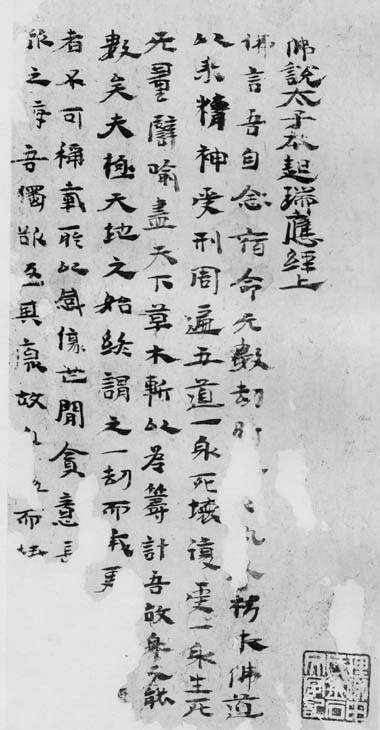 佛說太子本起瑞應經上
佛言吾自念宿命无數劫時佛道
以来精神受刑周遍五道一身死壞復受一身生死
无量譬喻盡天下草木斬以為籌計吾故身不能
數矣夫極天地之始終謂之一劫而我更
者不可稱載所以感傷世間貪意長
之海吾獨欲其源故而